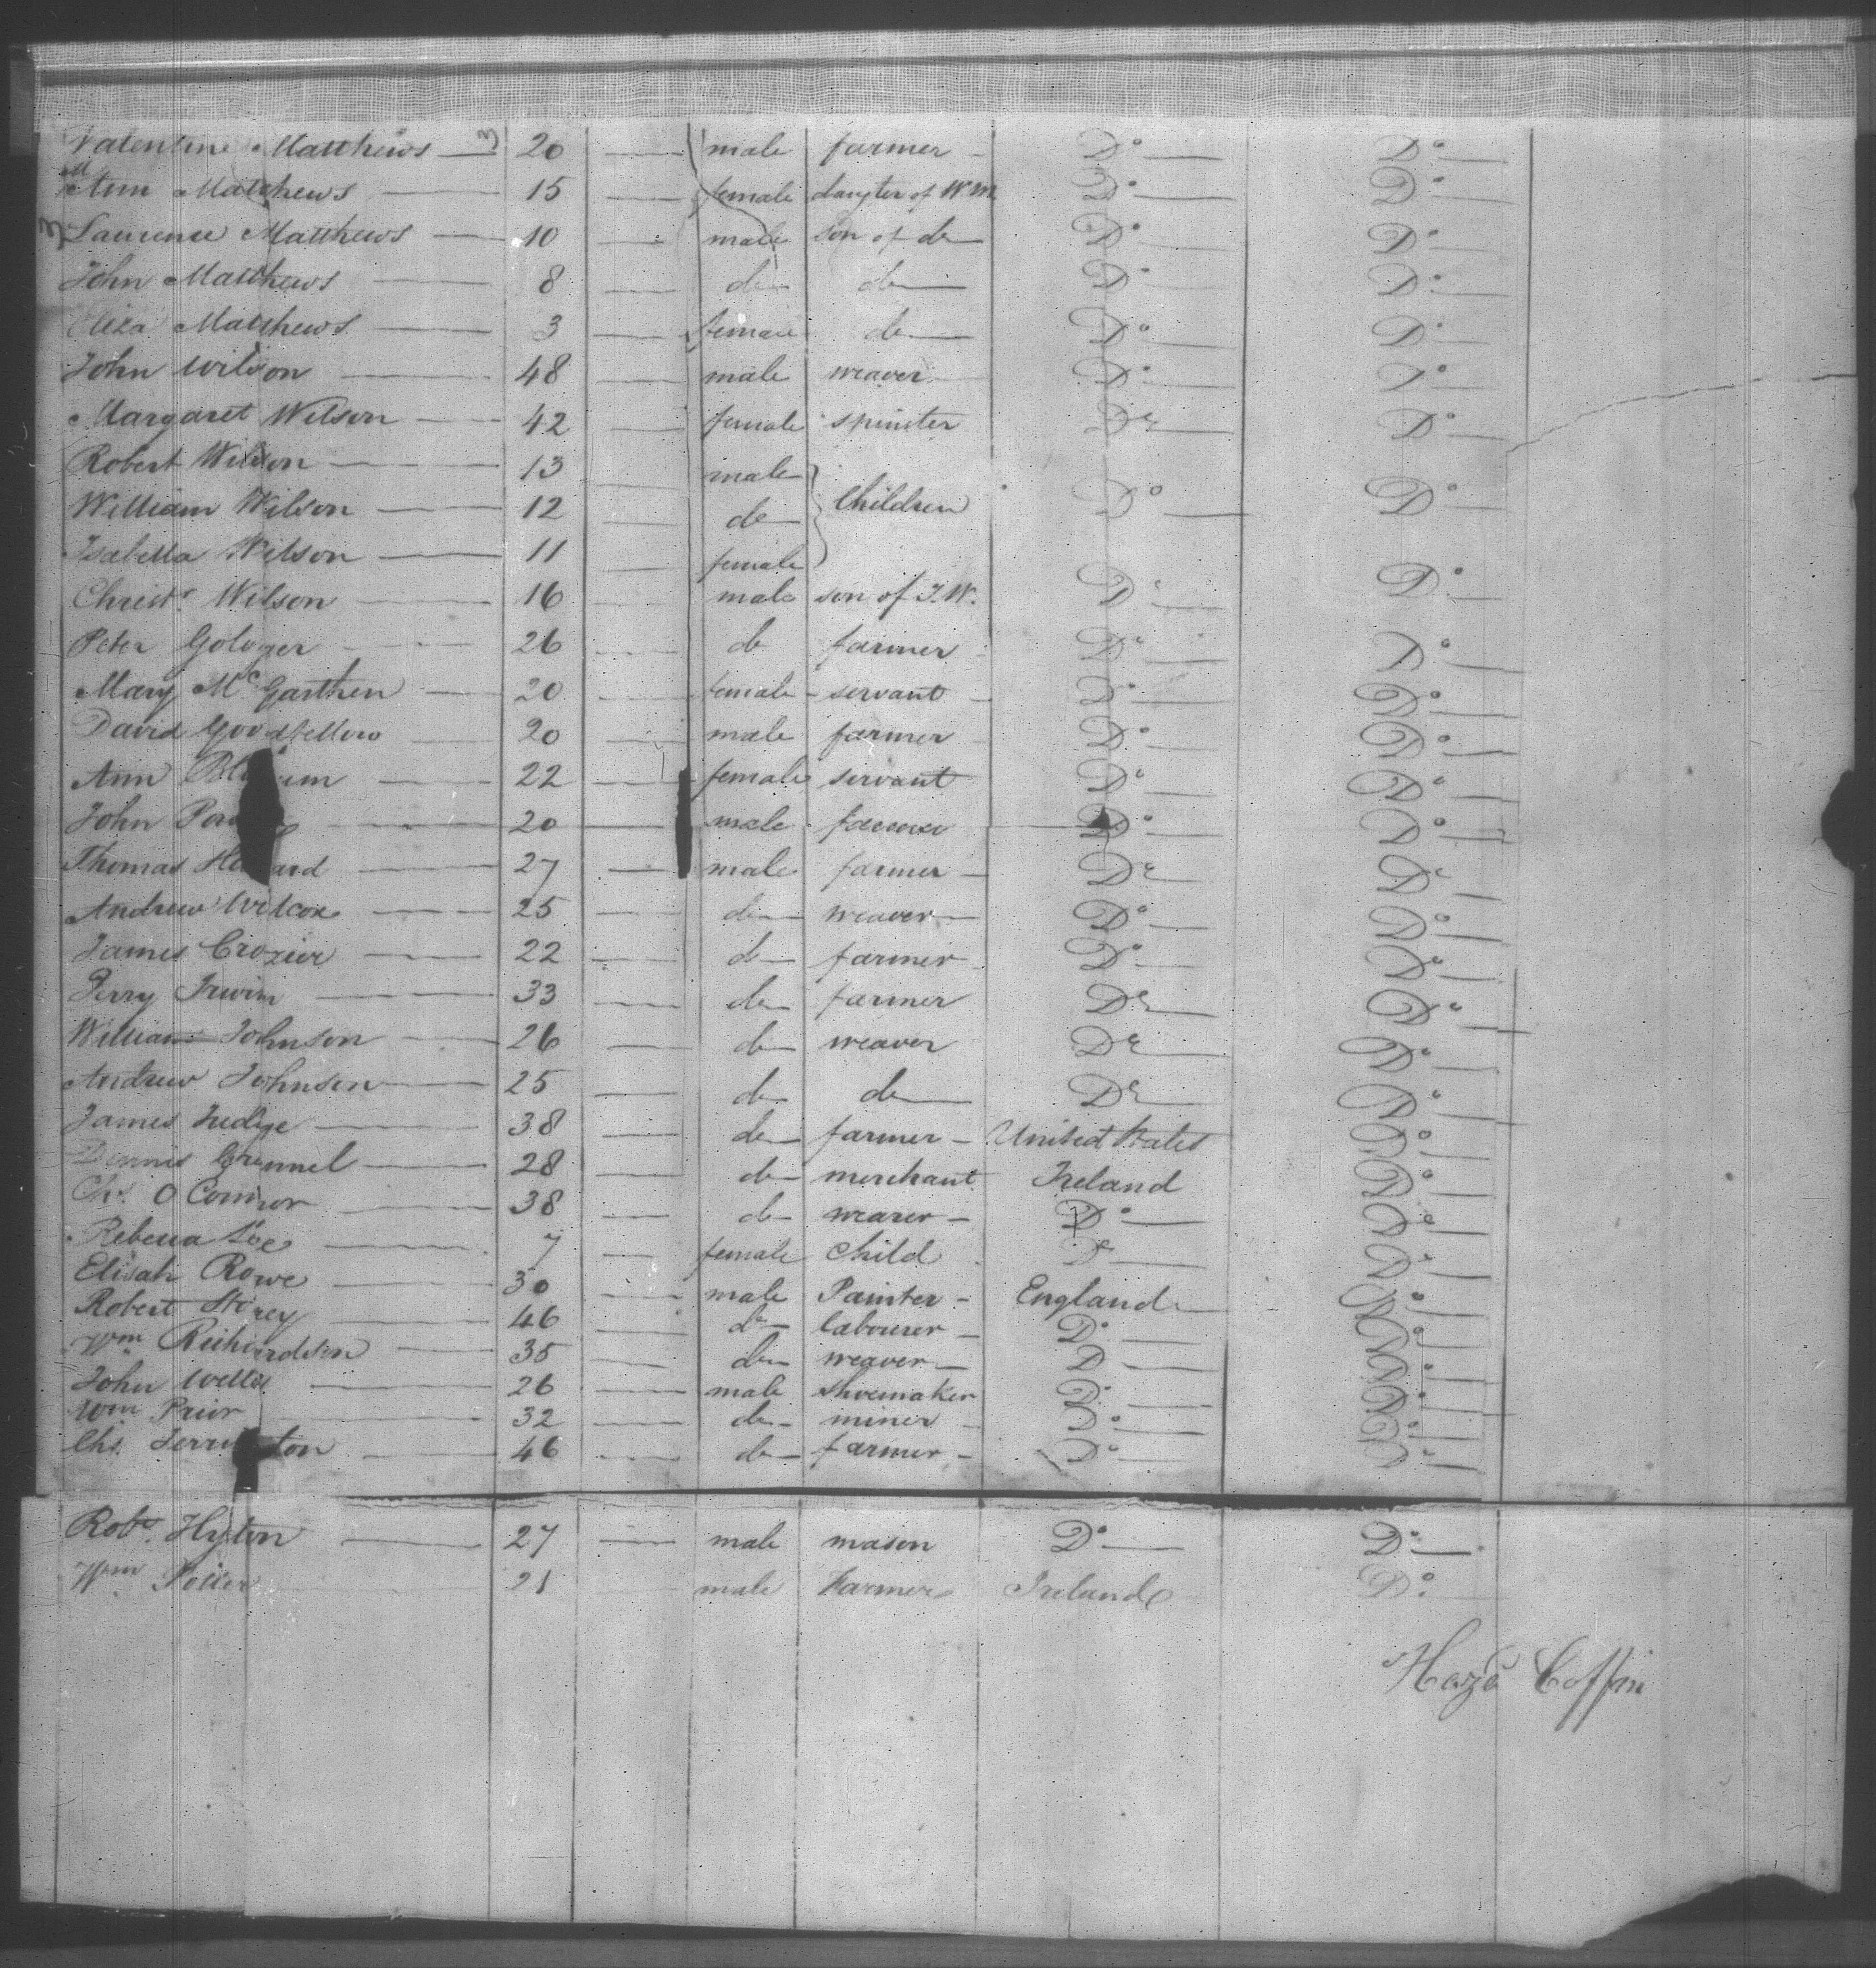 Valentine Matthews 20 male farmer Do Do
Ann Matthews 15 female daugter of W M Do Do
Laurence Matthews 10 male son of do Do Do
John Matthews 8 do do Do Do
Eliza Matthews 3 female do Do Do
John Wilson 48 male weaver Do Do
Margaret Wilson 42 female spinster Do Do
Robert Wilson 13 male
William Wilson 12 do Children Do Do
Isabella Wilson 11 female
Christr Wilson 16 male son of J.W. Do Do
Peter 26 do farmer Do Do
Mary Mc 20 female servant Do Do
David Goodfellow 20 male farmer Do Do
Ann 22 female servant Do Do
John 20 male farmer Do Do
Thomas 27 male farmer Do Do
Andrew Wilcox 25 do weaver Do Do
James Crozier 22 do farmer Do Do
Perry Irwin 33 do farmer Do Do
William Johnson 26 do weaver Do Do
Andrew Johnson 25 do do Do Do
James Judge 38 do farmer United States Do
Dennis 28 do merchant Ireland Do
Chs. O Connor 38 do wearer Do Do
Rebecca 7 female Child Do Do
Elisah Rowe 30 male Painter England Do
Robert Storey 46 do labourer Do Do
Wm Richardson 35 do weaver Do Do
John Wells 26 male Shoemaker Do Do
Wm Prior 32 do miner Do Do
Chs. 46 do farmer Do Do
Robt. Hylton 27 male mason Do Do
Wm 21 male Farmer Ireland Do
Hazd Coffin